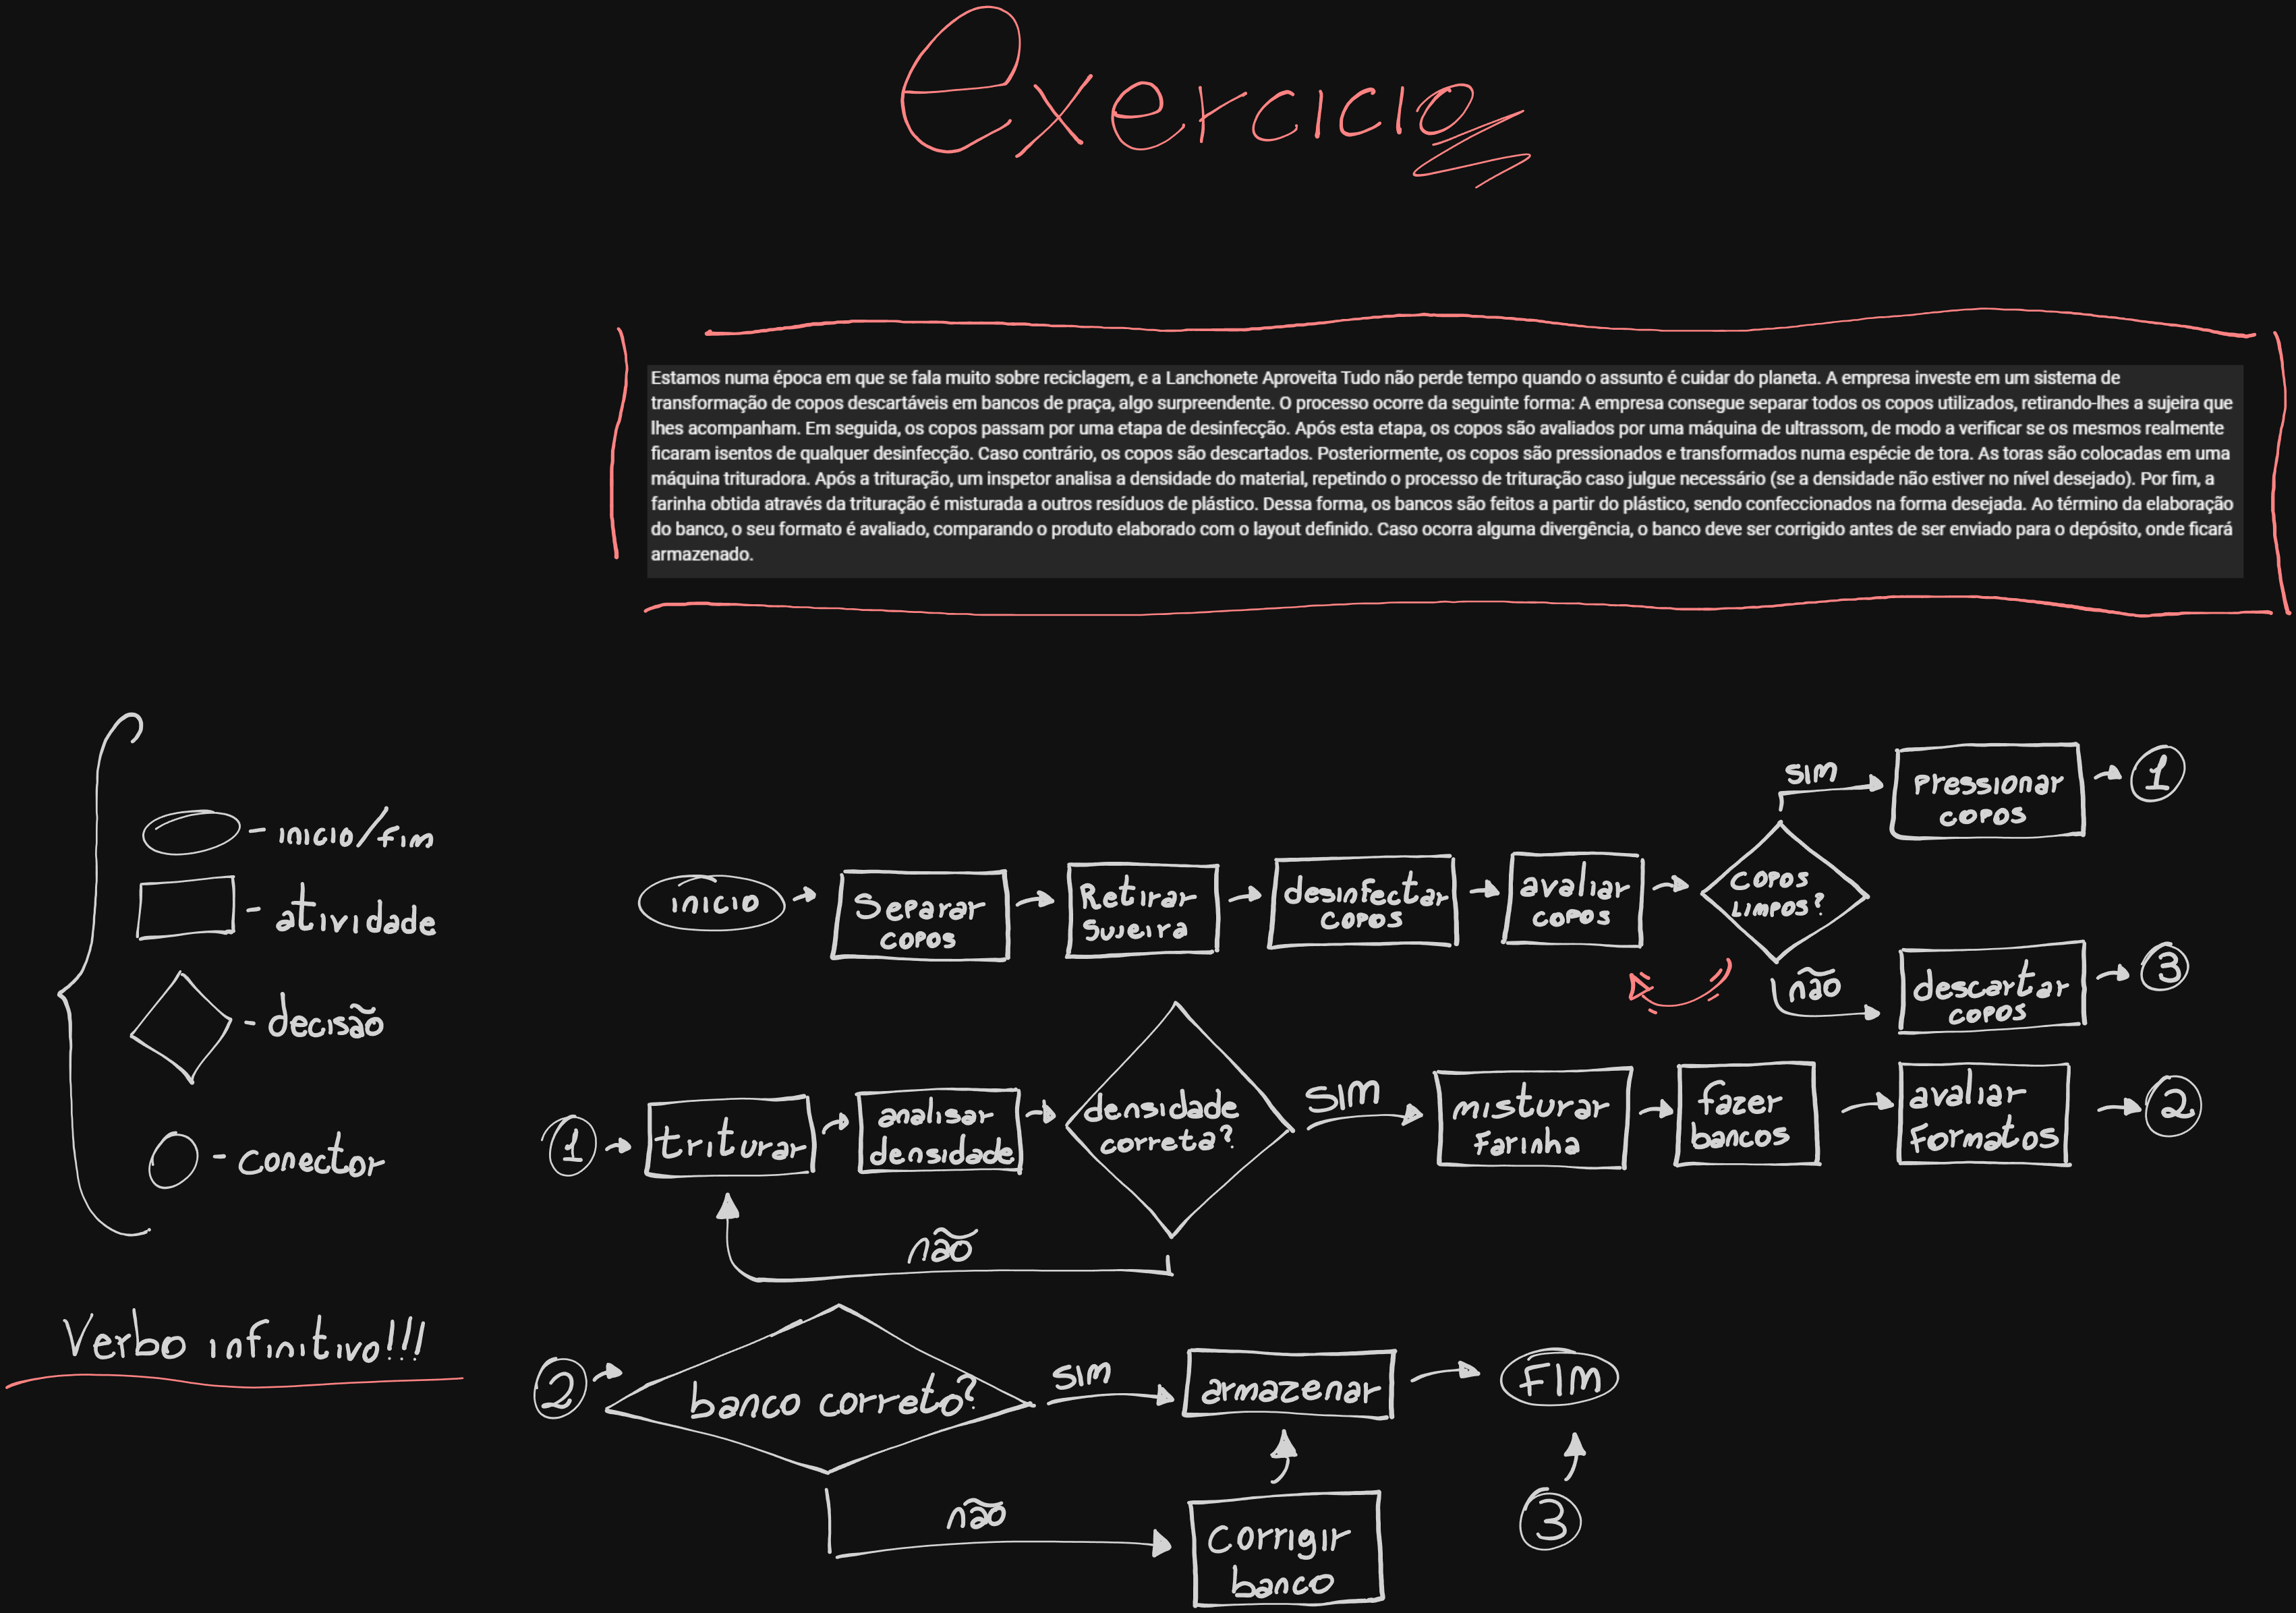 Exercicio
Estamos numa época em que se fala muito sobre reciclagem, e a Lanchonete Aproveita Tudo não perde tempo quando o assunto é cuidar do planeta. A empresa investe em um sistema de
transformação de copos descartáveis em bancos de praça, algo surpreendente. O processo ocorre da seguinte forma: A empresa consegue separar todos os copos utilizados, retirando-lhes a sujeira que
lhes acompanham. Em seguida, os copos passam por uma etapa de desinfecção. Após esta etapa, os copos são avaliados por uma máquina de ultrassom, de modo a verificar se os mesmos realmente
ficaram isentos de qualquer desinfecção. Caso contrário, os copos são descartados. Posteriormente, os copos são pressionados e transformados numa espécie de tora. As toras são colocadas em uma
máquina trituradora. Após a trituração, um inspetor analisa a densidade do material, repetindo o processo de trituração caso julgue necessário (se a densidade não estiver no nível desejado). Por fim, a
farinha obtida através da trituração é misturada a outros resíduos de plástico. Dessa forma, os bancos são feitos a partir do plástico, sendo confeccionados na forma desejada. Ao término da elaboração
do banco, o seu formato é avaliado, comparando o produto elaborado com o layout definido. Caso ocorra alguma divergência, o banco deve ser corrigido antes de ser enviado para o depósito, onde ficará
armazenado.
- inicio/fim
- atividade
- decisão
- conector
Verbo infinitivo!!!
inicio
Separar
copos
Retirar
Sujeira
desinfectar
copos
avaliar
copos
copos
limpos?
SIM
Pressionar
copos
1
não
descartar
copos
3
1
triturar
analisar
densidade
densidade
correta?
não
SIM
misturar
farinha
fazer
bancos
avaliar
formatos
2
2
banco correto?
SIM
armazenar
FIM
não
Corrigir
banco
3